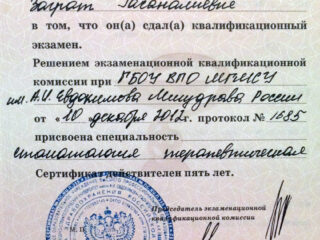 в том, что он(а) сдал(а) квалификационный
экзамен.
Решением экзаменационной квалификационной
комиссии при ГБОУ ВПО МГМСУ
им. А.И. Евдокимова Минздрава России
от «10 декабря 2012 г. протокол № 1685
присвоена специальность
стоматология терапевтическая
Сертификат действителен пять лет.
Председатель экзаменационной
квалификационной комиссии
М.П.